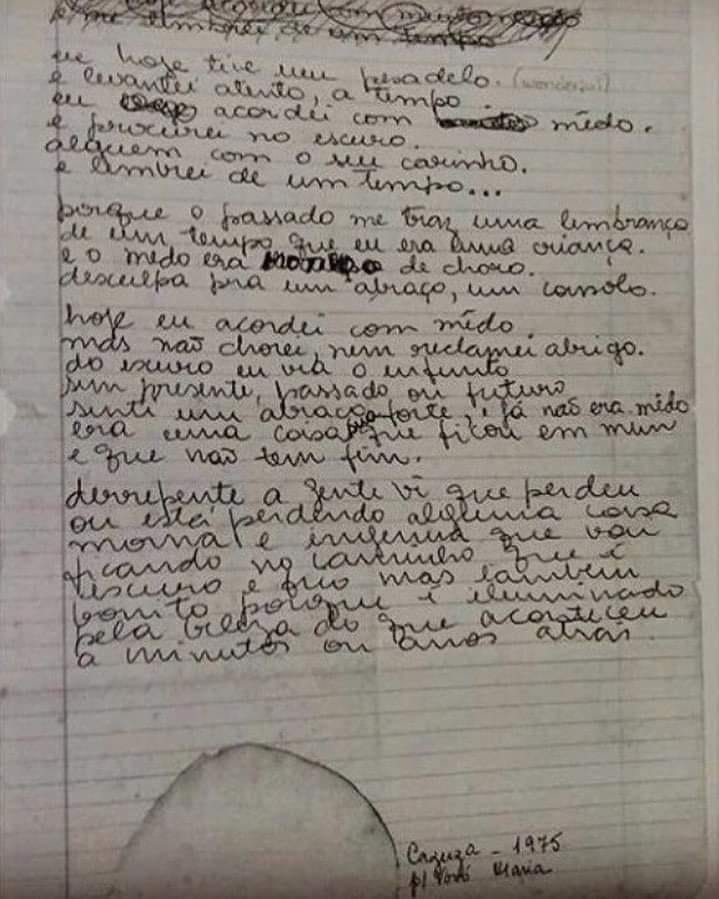 hoje acordei com muito medo
e me lembrei de um tempo
eu hoje tive um pesadelo. (wonderful)
e levantei atento, a tempo.
eu acordei com mêdo.
e procurei no escuro.
alguem com o seu carinho.
e lembrei de um tempo...
porque o passado me traz uma lembrança
de um tempo que eu era uma criança.
e o medo era de choro.
desculpa pra um abraço, um consolo.
hoje eu acordei com mêdo.
mas não chorei, nem reclamei abrigo.
do escuro eu via o infinito
sem presente, passado ou futuro
senti um abraço forte, já não era mêdo
era uma coisa que ficou em mim
e que não tem fim.
derrepente a gente vê que perdeu
ou está perdendo alguma coisa
morna e ingenua que vai
ficando no caminho que é
escuro e frio mas também
bonito porque é iluminado
pela beleza do que aconteceu
a minutos ou anos atrás.
Cazuza - 1975
p/ Vovó Maria